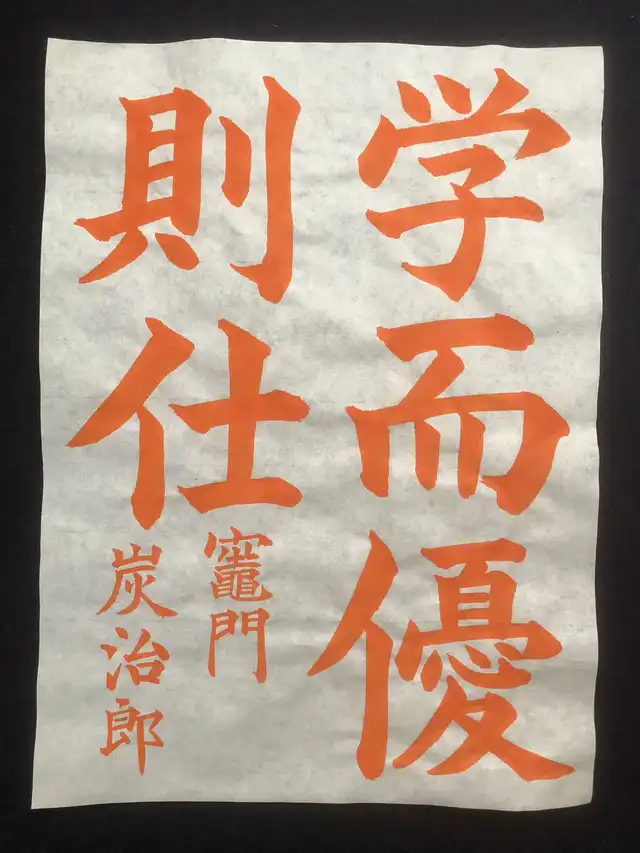 学而優
則仕
竈門
炭治郎